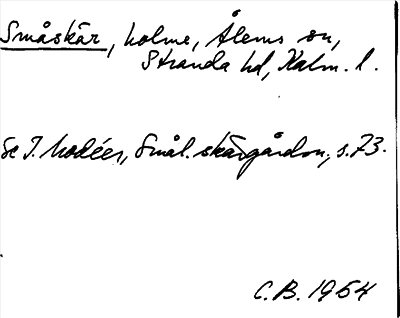 Småskär, holme, Ålems sn,
Stranda hd, Kalm. l.
Se I. Modéer, Smål. skärgårdsn., s. 73.
C.B. 1964